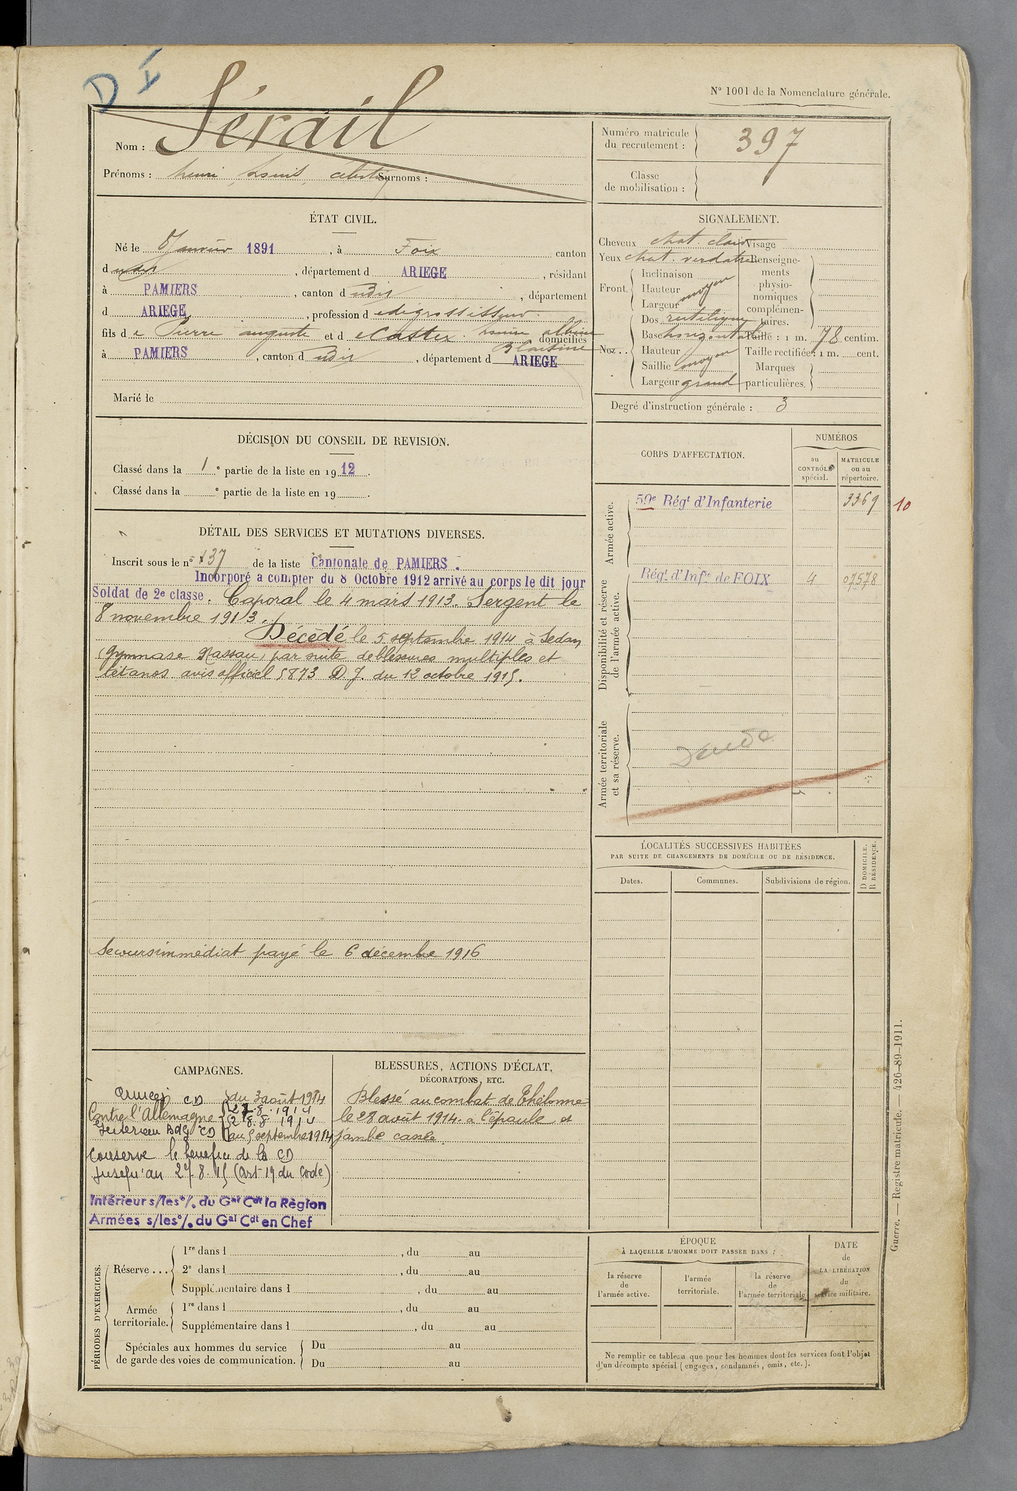 D I
N° 1001 de la Nomenclature générale.
Nom : Sérail
Prénoms : henri, Louis, Surnoms :
Numéro matricule du recrutement : 397
Classe de mobilisation :
ÉTAT CIVIL.
Né le 8 Janvier 1891, à Foix canton
d udit, département d ARIEGE, résidant
à PAMIERS, canton d udit, département
d ARIEGE, profession d
fils d e Pierre auguste et d e Castex Louise albine Blondine domiciliés
à PAMIERS, canton d udit, département d ARIEGE
Marié le
SIGNALEMENT.
Cheveux chat. clair
Yeux chat. verdatre
Front. Inclinaison
Hauteur moyen
Largeur
Nez .. Dos rectiligne
Base horizontale
Hauteur
Saillie moyen
Largeur grand
Visage
Renseignements physionomiques complémentaires.
Taille : 1 m. 78 centim.
Taille rectifiée : 1 m. cent.
Marques particulières.
Degré d'instruction générale : 3
DÉCISION DU CONSEIL DE REVISION.
Classé dans la 1 e partie de la liste en 1912.
Classé dans la e partie de la liste en 19 .
CORPS D'AFFECTATION.
NUMÉROS
au CONTRÔLE spécial.
MATRICULE ou au répertoire.
Armée active.
59e Régt d'Infanterie 3369 10
Disponibilité et réserve de l'armée active.
Régt d'Infie de FOIX 4 07578
Armée territoriale et sa réserve.
DÉTAIL DES SERVICES ET MUTATIONS DIVERSES.
Inscrit sous le n° 137 de la liste Cantonale de PAMIERS.
Incorporé à compter du 8 Octobre 1912 arrivé au corps le dit jour
Soldat de 2e classe. Caporal le 4 mars 1913. Sergent le
8 novembre 1913.
Décédé le 5 septembre 1914 à Sedan
(Gymnase Nassau) par suite de blessures multiples et
tétanos avis officiel 5873 D J. du 12 octobre 1915.
Secours immédiat payé le 6 décembre 1916
LOCALITÉS SUCCESSIVES HABITÉES
PAR SUITE DE CHANGEMENTS DE DOMICILE OU DE RÉSIDENCE.
Dates.
Communes.
Subdivisions de région.
D DOMICILE. R RÉSIDENCE.
CAMPAGNES.
Armées CD du 3 août 1914
Contre l'Allemagne 27.8.1914
28.8.1914
Interieur BdG CD au 5 septembre 1914
Conserve le benefice de la CD
jusqu'au 27.8.15 (art 19 du Code)
Intérieur s/les °/. du Gal Cdt la Région
Armées s/les °/. du Gal Cdt en Chef
BLESSURES, ACTIONS D'ÉCLAT,
DÉCORATIONS, ETC.
Blessé au combat de Thélonne
le 28 août 1914. à l'épaule et
jambe cassée.
PÉRIODES D'EXERCICES.
Réserve ... 1re dans l , du au
2e dans l , du au
Supplémentaire dans l , du au
Armée territoriale. 1re dans l , du au
Supplémentaire dans l , du au
Spéciales aux hommes du service de garde des voies de communication. Du au
Du au
ÉPOQUE
À LAQUELLE L'HOMME DOIT PASSER DANS :
la réserve de l'armée active.
l'armée territoriale.
la réserve de l'armée territoriale
DATE de LA LIBÉRATION du service militaire.
Ne remplir ce tableau que pour les hommes dont les services font l'objet
d'un décompte spécial (engagés, condamnés, omis, etc.).
Guerre. — Registre matricule. — 426-89-1911.